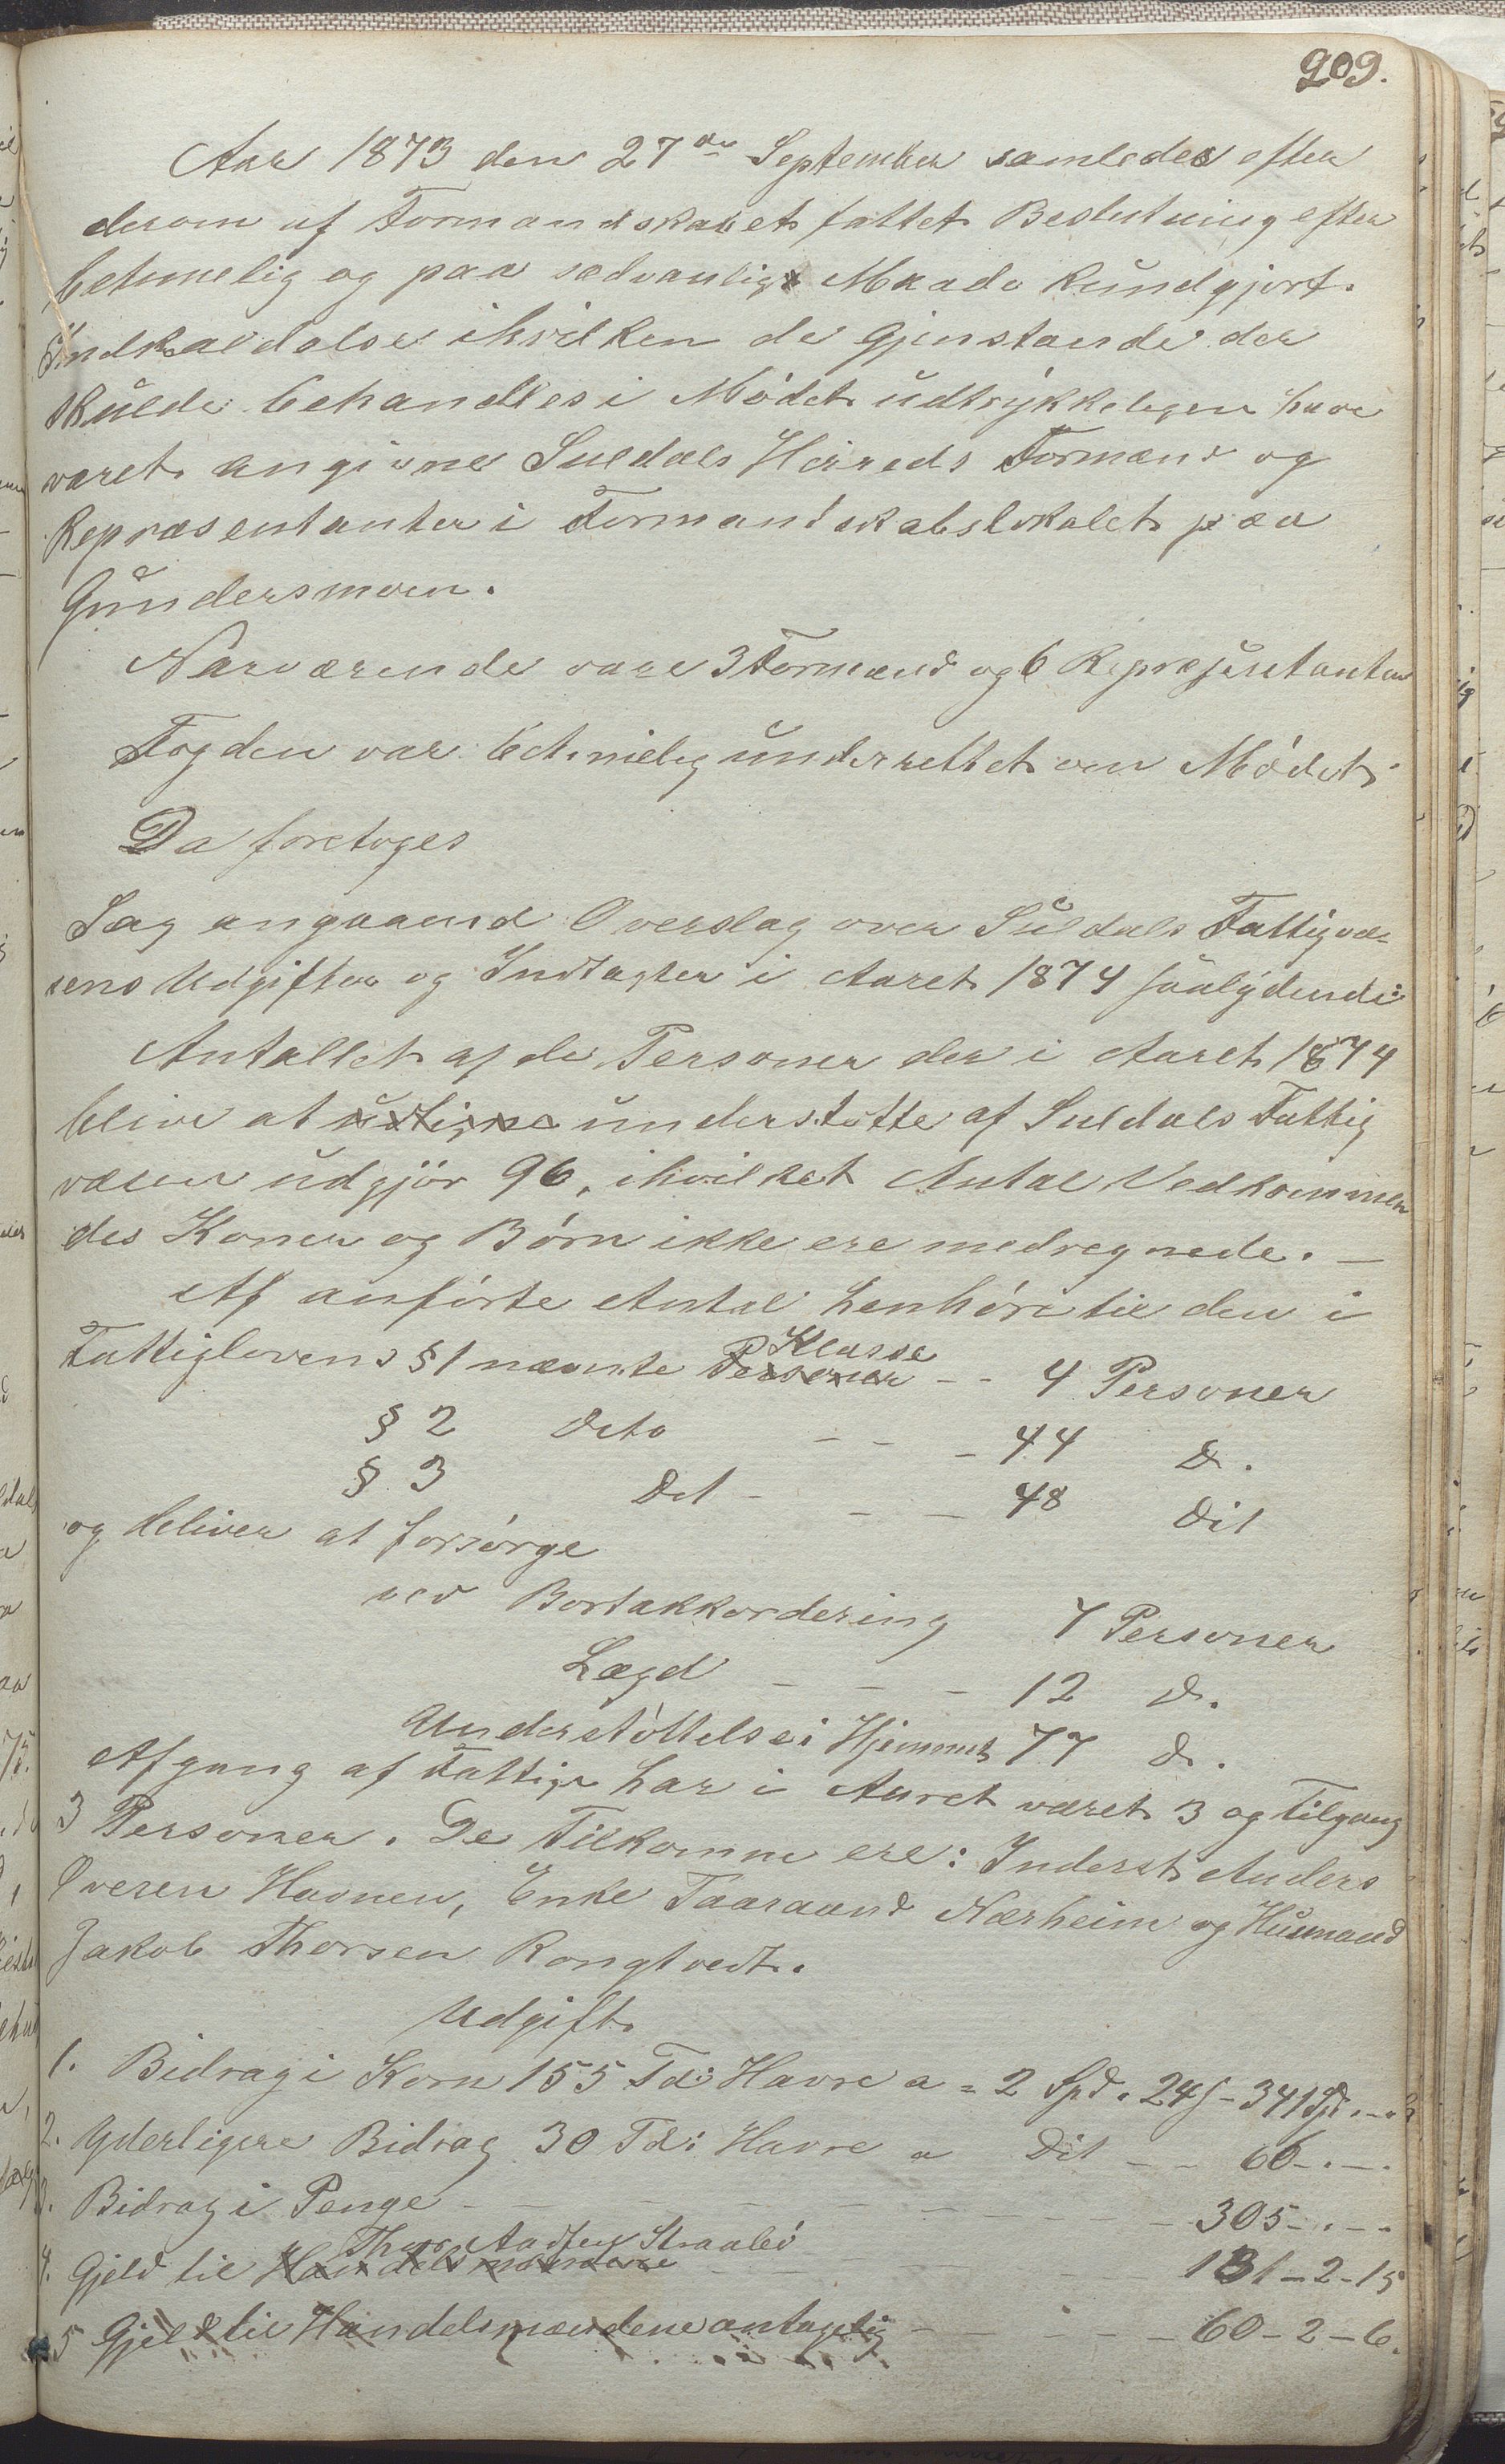 209.
Aar 1873 den 27de September samledes efter
derom af Formandskabet fattet Beslutning efter
betimelig og paa sædvanlig Maade kundgjort
Indkaldelse ihvilken de Gjenstande der
skulde behandles i Mødet udtrykkeligen have
været angivne Suldals Herreds Formænd og
Repræsentanter i Formandskabslokalet paa
Gundersmoen.
Nærværende vare 3 Formænd og 6 Repræsentanter
Fogden var betimelig underrettet om Mødet
Da foretoges
Sag angaaend Overslag over Suldals Fattigvæ-
sens Udgifter og Indtægter i Aaret 1874 saalydende:
Antallet af de Personer der i Aaret 1874
blive at udligne understøtte af Suldals Fattig
væsen udgjør 96, ihvilket Antal Vedkommen
des Koner og Børn ikke ere medregnede. —
Af anførte Antal henhøre til den i
Fattiglovens § 1 nævnte Personer Klasse - - 4 Personer
§ 2 Dito - - - 44 D.
§ 3 Dit - - - 48 Dit
og bliver at forsørge
ved Bortakkordering 7 Personer
Lægd - - - 12 D.
Understøttelse i Hjemmet 77 D.
Afgang af Fattige har i Aaret været 3 og Tilgang
3 Personer. De Tilkomne ere: Inderst Anders
Iversen Havnen, Enke Taaraand Nærheim og Husmand
Jakob Thorsen Rongtvedt.
Udgift
1. Bidrag i Korn 155 Td: Havre a = 2 Spd. 24 s - 341 Spd. - "
2. Yderligere Bidrag 30 Td: Havre a Dit - - 66 - . - .
3. Bidrag i Penge - - - - - - 305 - . - .
4. Gjeld til Handelsmændene Thor Straabø - - - 131 - 2 - 15
5 Gjeld til Handelsmændene antagelig - - - - 60 - 2 - 6.